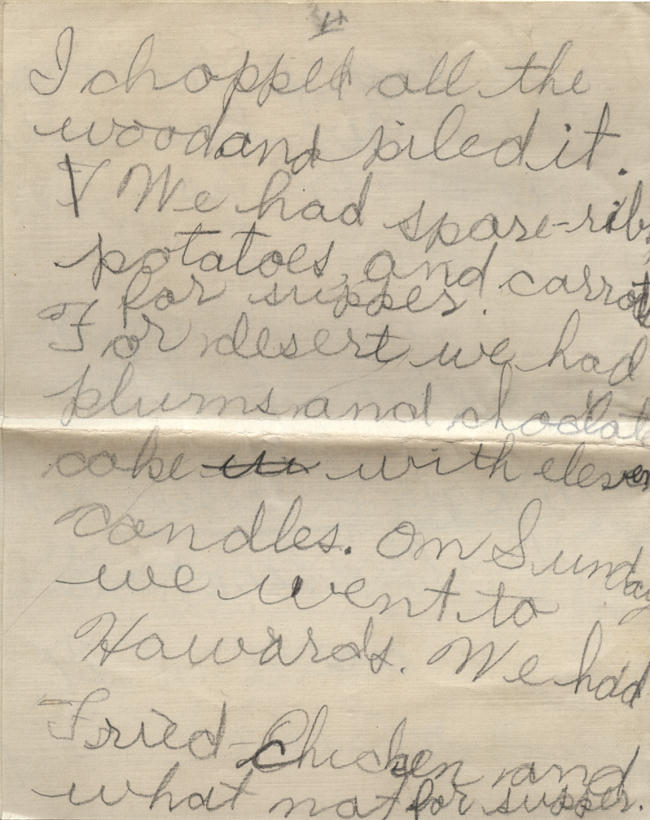 I chopped all the
wood and piled it.
We had spare-ribs
potatoes, and carrots
for supper.
For desert we had
plums and choclate
cake with eleven
candles. On Sunday
we went to
Howards. We had
Fried-Chicken and
what not for supper.